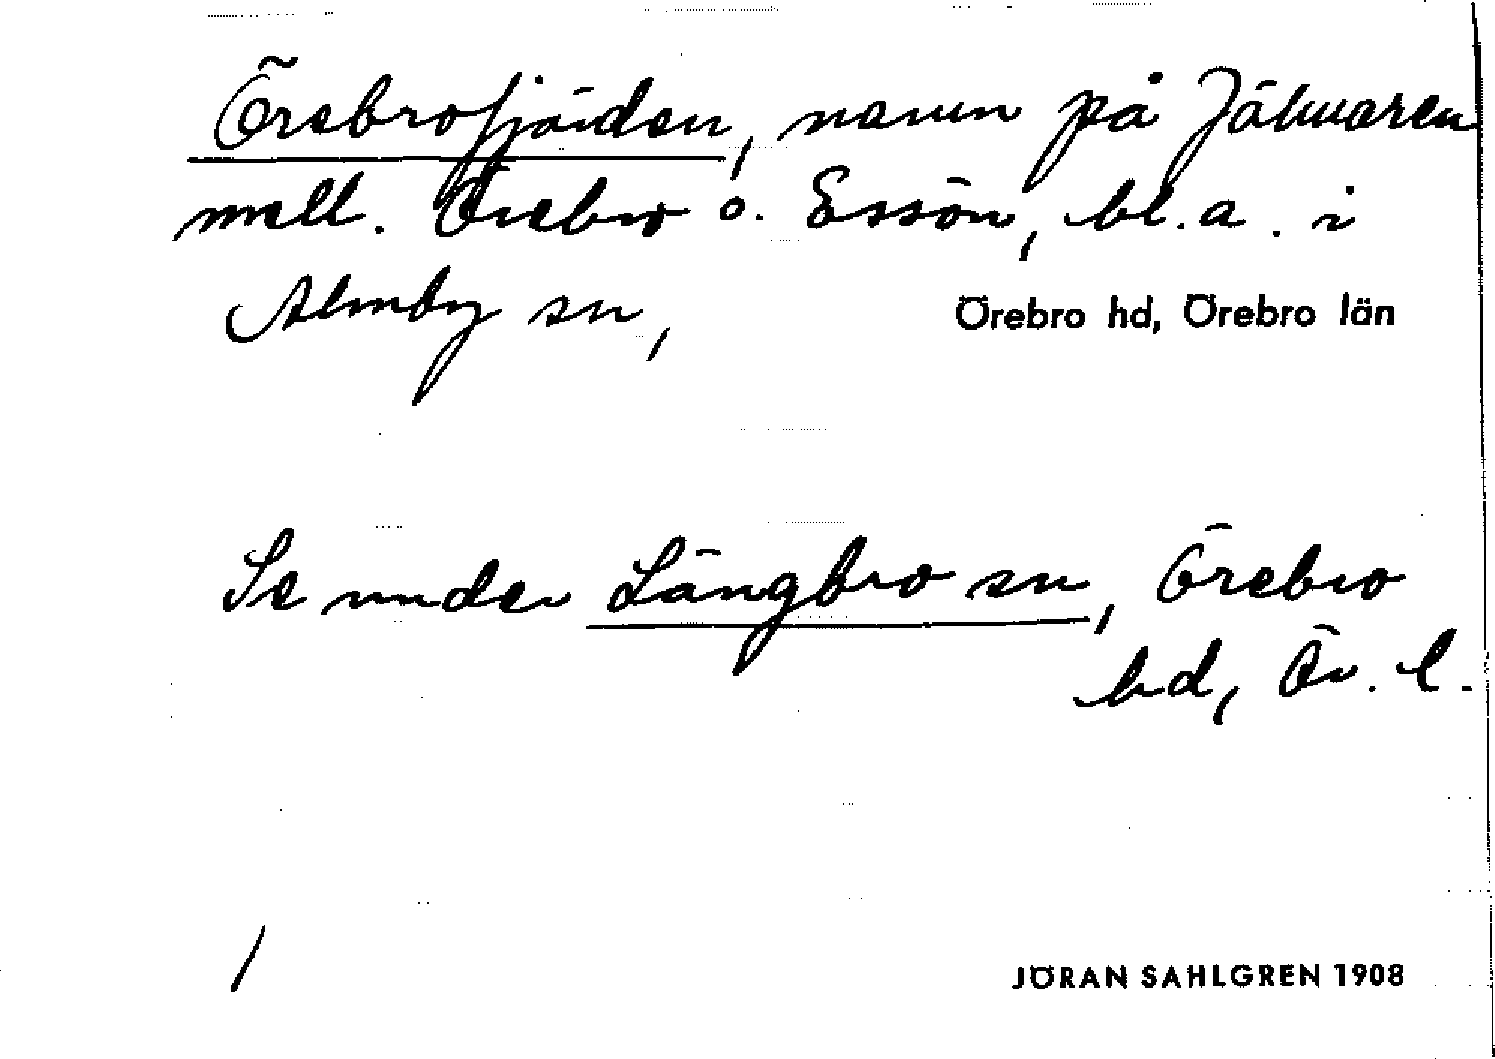 Örebrofjärden, namn på Jälmaren
mell. Örebro o. Essön, bl.a. i
Almby sn, Örebro hd, Örebro län
Se under Längbro sn, Örebro
hd, Ör. l.
/
JÖRAN SAHLGREN 1908